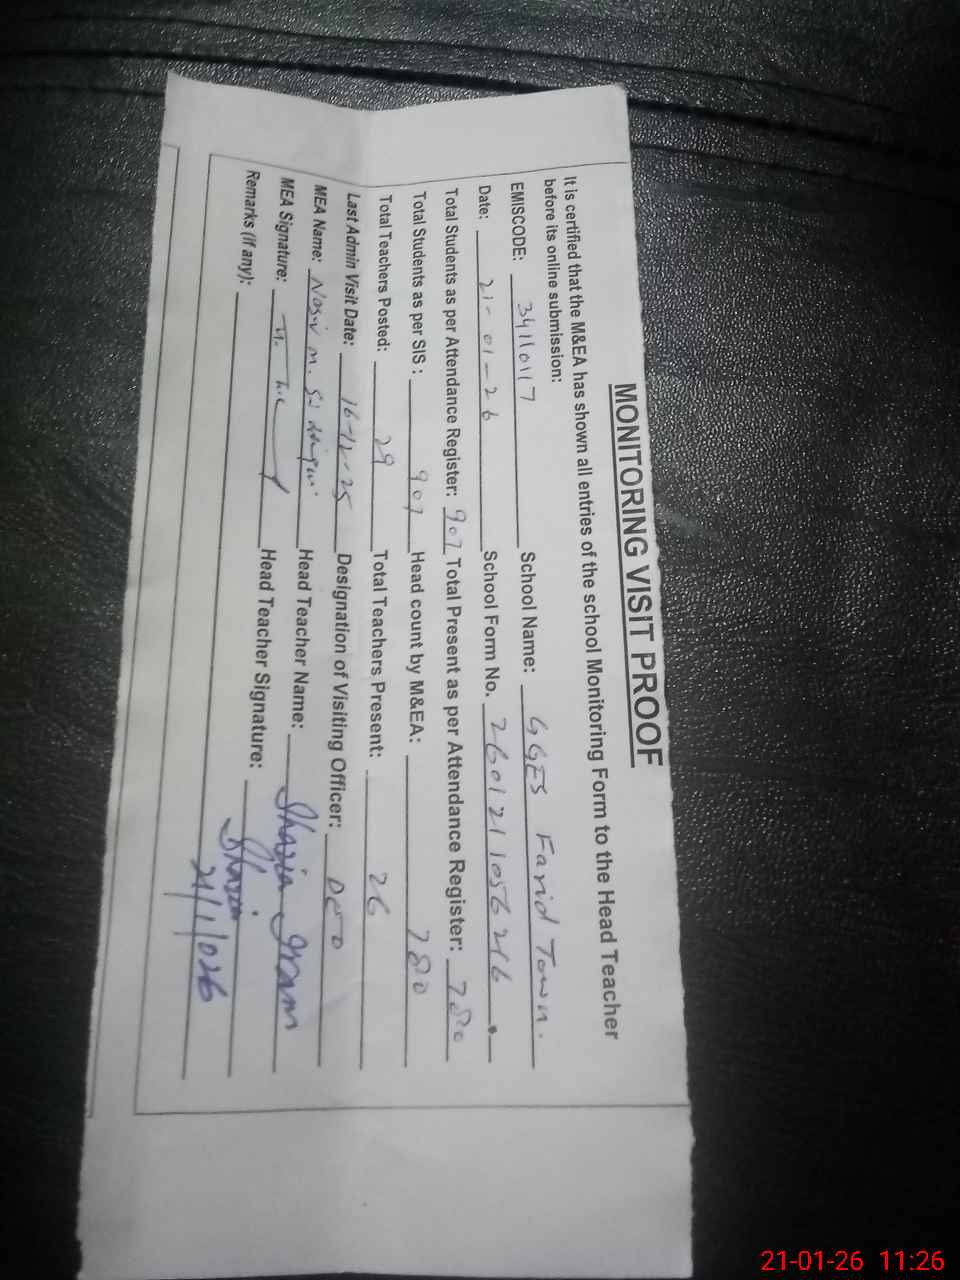 MONITORING VISIT PROOF
It is certified that the M&EA has shown all entries of the school Monitoring Form to the Head Teacher
before its online submission:
EMISCODE: 34110117 School Name: GGES Farid Town.
Date: 21-01-26 School Form No. 2601211056216
Total Students as per Attendance Register: 907 Total Present as per Attendance Register: 780
Total Students as per SIS: 907 Head count by M&EA: 780
Total Teachers Posted: 29 Total Teachers Present: 26
Last Admin Visit Date: 16-12-25 Designation of Visiting Officer: DEO
MEA Name: Nasir m. Head Teacher Name: Shazia Ikram
MEA Signature: Head Teacher Signature: Shazia
Remarks (if any): 21/1/026
21-01-26 11:26